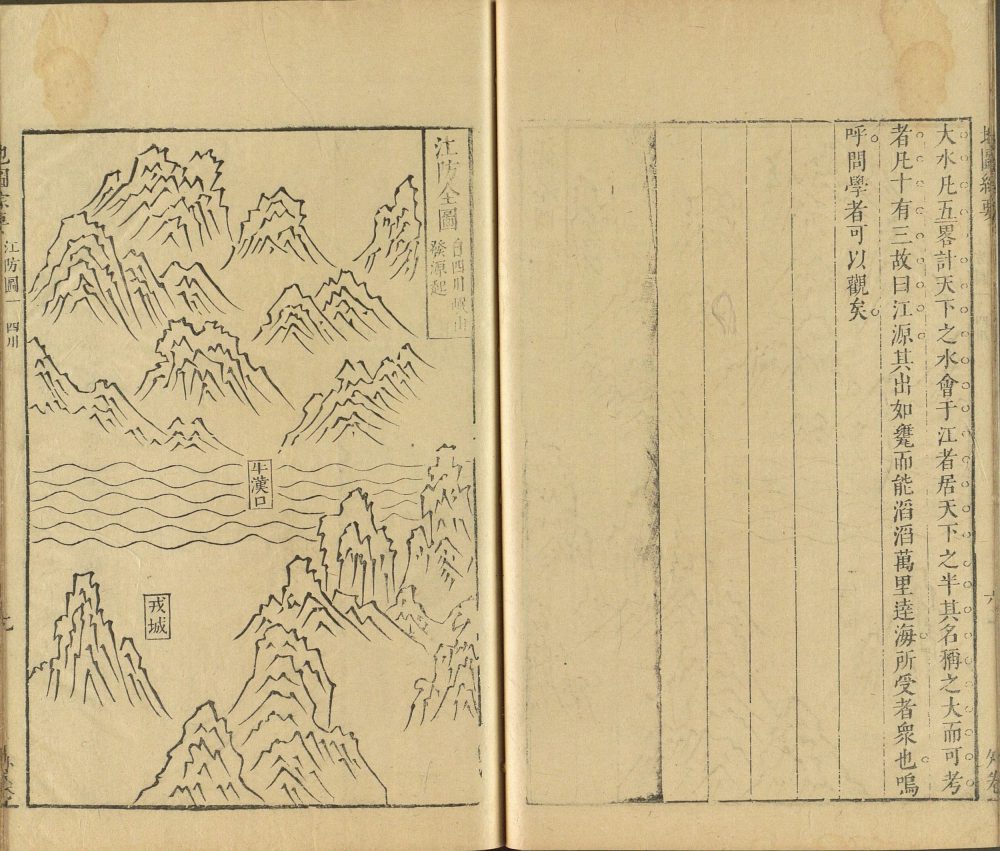 大水凡五畧計天下之水會于江者居天下之半其名稱之大而可考
者凡十有三故曰江源其出如甕而能滔滔萬里達海所受者衆也嗚
呼問學者可以觀矣
江防全圖
自四川岷山
發源起
牛漢口
戎城
江防圖一
四川
九